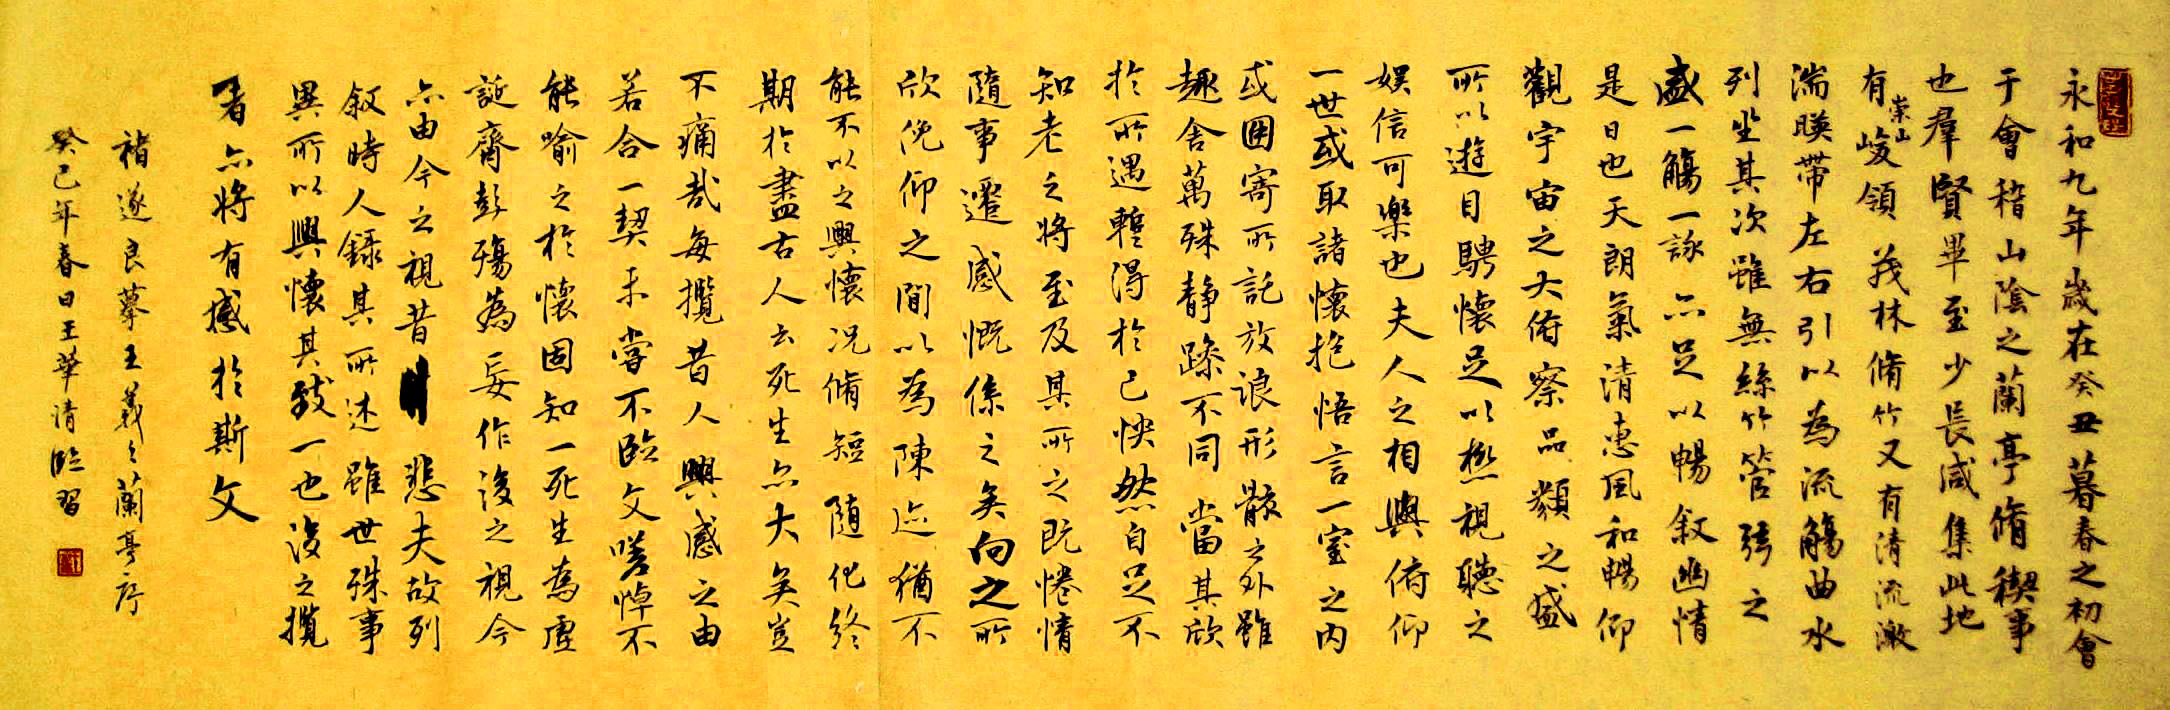 永和九年歲在癸丑暮春之初會
于會稽山陰之蘭亭脩稧事
也羣賢畢至少長咸集此地
有崇山峻領茂林脩竹又有清流激
湍暎帶左右引以為流觴曲水
列坐其次雖無絲竹管弦之
盛一觴一詠亦足以暢敘幽情
是日也天朗氣清惠風和暢仰
觀宇宙之大俯察品類之盛
所以遊目騁懷足以極視聽之
娛信可樂也夫人之相與俯仰
一世或取諸懷抱悟言一室之內
或因寄所託放浪形骸之外雖
趣舍萬殊靜躁不同當其欣
於所遇蹔得於己怏然自足不
知老之將至及其所之既惓情
隨事遷感慨係之矣向之所
欣俛仰之閒以為陳迹猶不
能不以之興懷況脩短隨化終
期於盡古人云死生亦大矣豈
不痛哉每攬昔人興感之由
若合一契未嘗不臨文嗟悼不
能喻之於懷固知一死生為虛
誕齊彭殤為妄作後之視今
亦由今之視昔悲夫故列
敘時人錄其所述雖世殊事
異所以興懷其致一也後之攬
者亦將有感於斯文
褚遂良摹王羲之蘭亭序
癸巳年春日王華清臨習